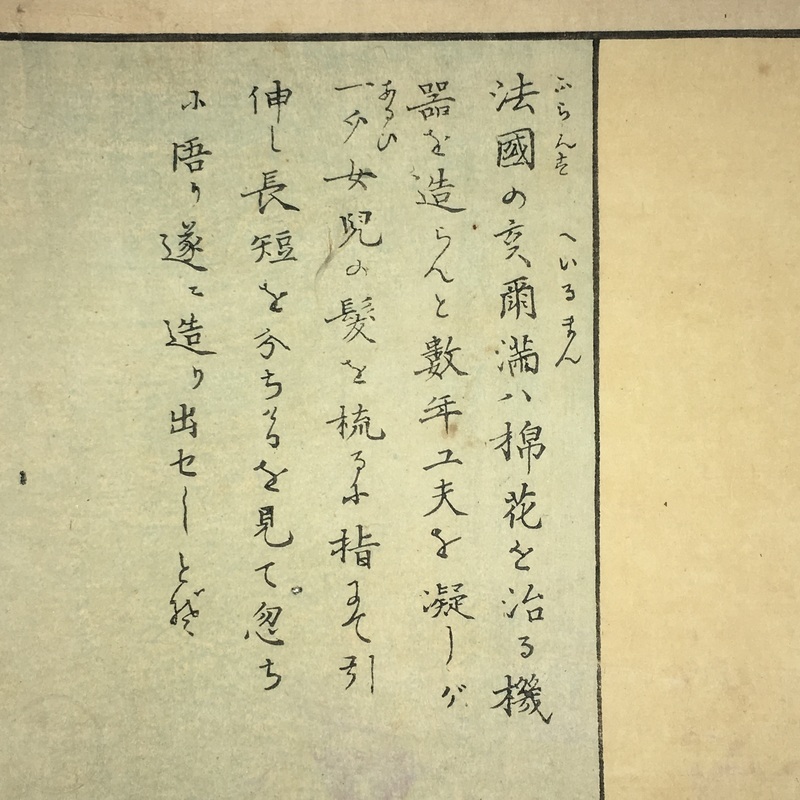 ふらんす へいるまん
法國の亥爾満ハ棉花を治る機
器を造らんと數年工夫を凝しが
あるひ
一夕女兒の髪を梳るに指にて引
伸し長短を分ちけるを見て。忽ち
に悟り遂ニ造り出セしとぞ